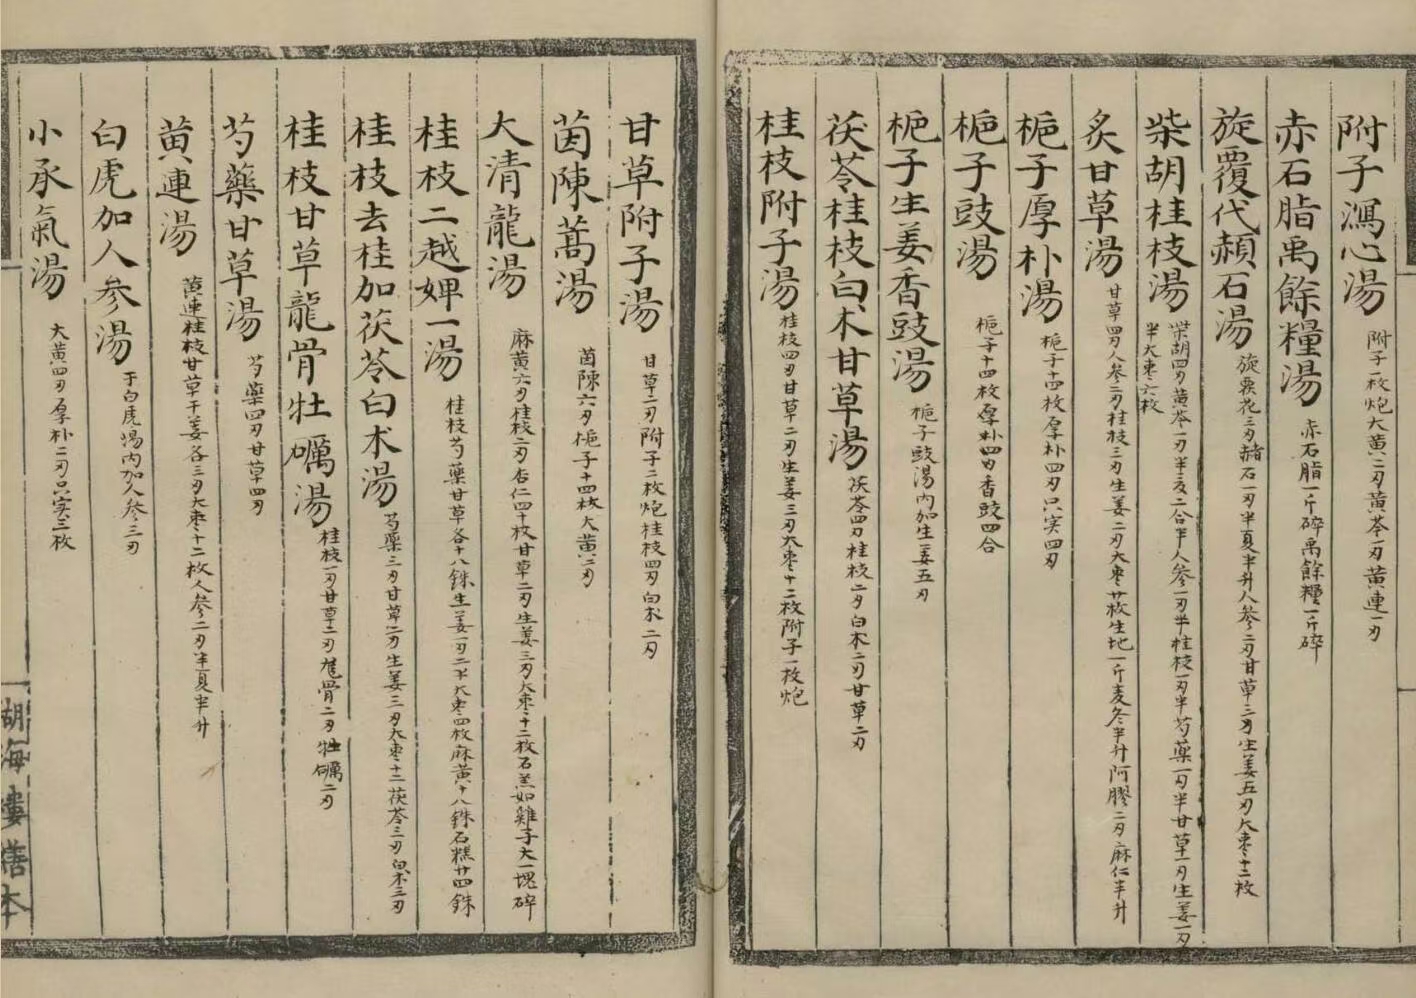 附子瀉心湯 附子一枚炮大黃二刃黃芩一刃黃連一刃
赤石脂禹餘糧湯 赤石脂一斤碎禹餘糧一斤碎
旋覆代赬石湯 旋覆花三刃赭石一刃半夏半升人參二刃甘草三刃生姜五刃大棗十二枚
柴胡桂枝湯 柴胡四刃黃芩一刃半夏二合半人參一刃半桂枝一刃半芍藥一刃半甘草一刃生姜一刃
半大棗六枚
炙甘草湯 甘草四刃人參二刃桂枝三刃生姜二刃大棗廿枚生地一斤麦冬半升阿膠二刃麻仁半升
梔子厚朴湯 梔子十四枚厚朴四刃只实四刃
梔子豉湯 梔子十四枚厚朴四刃香豉四合
梔子生姜香豉湯 梔子豉湯内加生姜五刃
茯苓桂枝白术甘草湯 茯苓四刃桂枝二刃白术二刃甘草二刃
桂枝附子湯 桂枝四刃甘草二刃生姜三刃大棗十二枚附子一枚炮
甘草附子湯 甘草二刃附子二枚炮桂枝四刃白术二刃
茵陳蒿湯 茵陳六刃梔子十四枚大黃二刃
大清龍湯 麻黃六刃桂枝二刃杏仁四十枚甘草二刃生姜三刃大棗十二枚石羔如雞子大一塊碎
桂枝二越婢一湯 桂枝芍藥甘草各十八銖生姜一刃二半大棗四枚麻黃十八銖石糕廿四銖
桂枝去桂加茯苓白术湯 芍藥三刃甘草二刃生姜三刃大棗十二茯苓三刃白术三刃
桂枝甘草龍骨牡礪湯 桂枝一刃甘草二刃龙骨二刃牡礪二刃
芍藥甘草湯 芍藥四刃甘草四刃
黃連湯 黃連桂枝甘草干姜各三刃大棗十二枚人參二刃半夏半升
白虎加人參湯 于白虎湯内加人參三刃
小承氣湯 大黃四刃厚朴二刃只实三枚
湖海樓
本